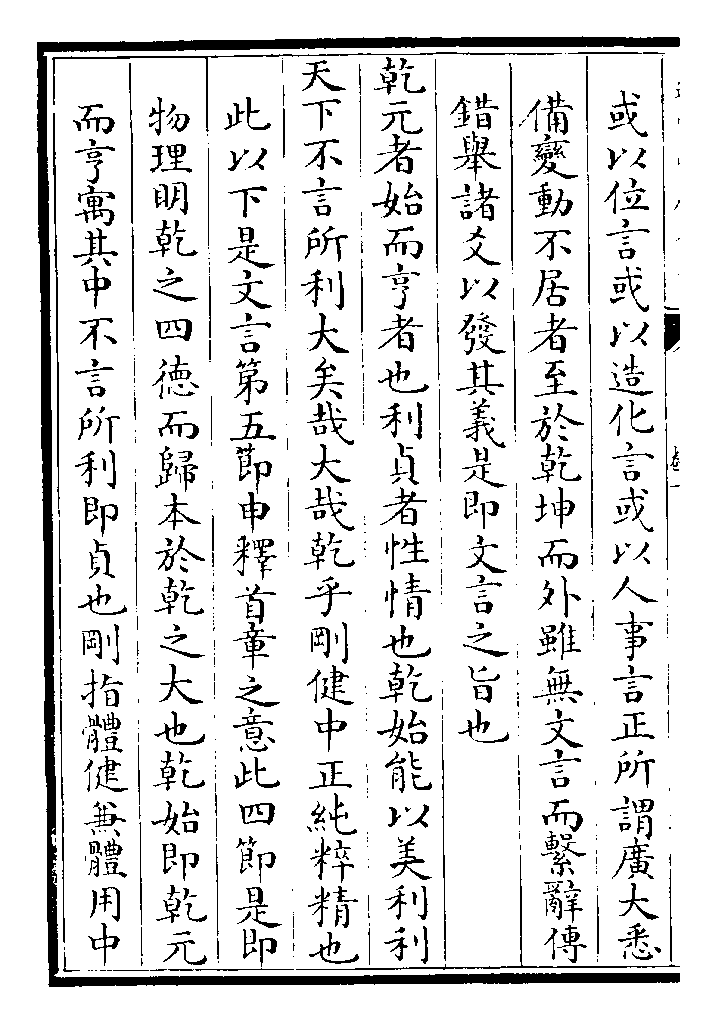 或以位言或以造化言或以人事言正所謂廣大悉
備變動不居者至於乾坤而外雖無文言而繫辭傳
錯舉諸爻以發其義是即文言之旨也
乾元者始而亨者也利貞者性情也乾始能以美利利
天下不言所利大矣哉大哉乾乎剛健中正純粹精也
此以下是文言第五節申釋首章之意此四節是即
物理明乾之四德而歸本於乾之大也乾始即乾元
而亨寓其中不言所利即貞也剛指體健兼體用中